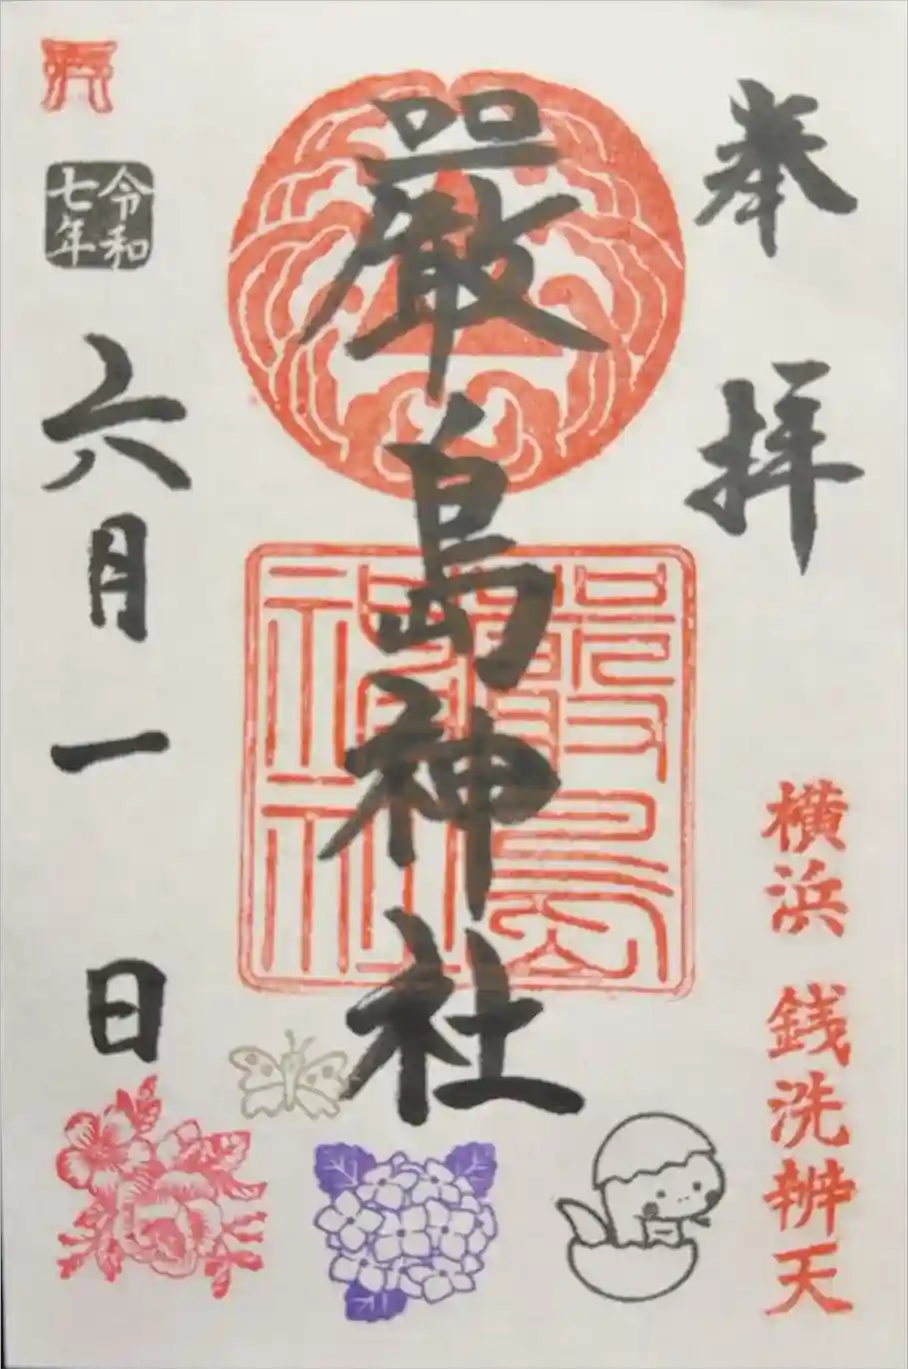 奉拝
横浜 銭洗辨天
厳島神社
厳島
神社
令和
七年
六月一日